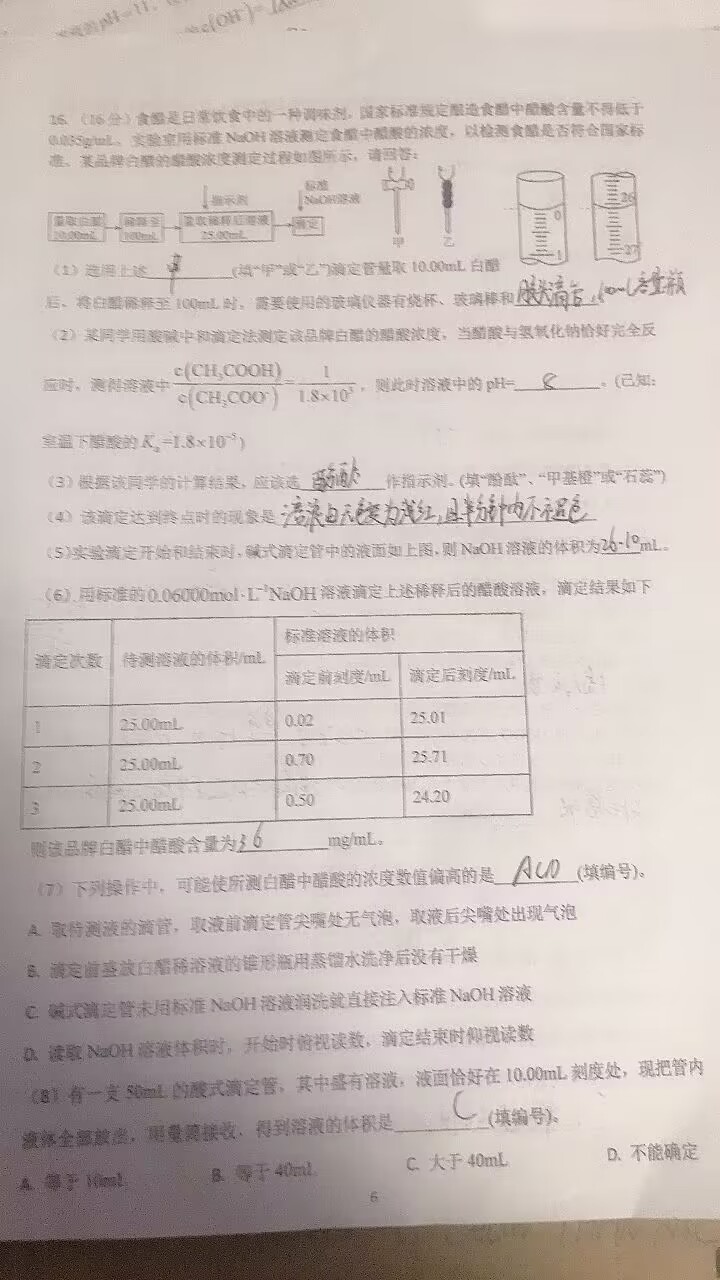 液的pH=11，
c(OH⁻)=
16.（16分）食醋是日常饮食中的一种调味剂，国家标准规定酿造食醋中醋酸含量不得低于
0.035g/mL。实验室用标准NaOH溶液测定食醋中醋酸的浓度，以检测食醋是否符合国家标
准。某品牌白醋的醋酸浓度测定过程如图所示，请回答：
指示剂
标准
NaOH溶液
量取白醋
10.00mL
稀释至
100mL
量取稀释后溶液
25.00mL
滴定
甲
乙
0
1
26
27
（1）选用上述甲(填“甲”或“乙”)滴定管量取10.00mL白醋
后，将白醋稀释至100mL时，需要使用的玻璃仪器有烧杯、玻璃棒和胶头滴管，100mL容量瓶
（2）某同学用酸碱中和滴定法测定该品牌白醋的醋酸浓度，当醋酸与氢氧化钠恰好完全反
应时，测得溶液中c(CH₃COOH)/c(CH₃COO⁻)=1/1.8×10³，则此时溶液中的pH=8。(已知:
室温下醋酸的Kₐ=1.8×10⁻⁵)
（3）根据该同学的计算结果，应该选酚酞作指示剂。(填“酚酞”、“甲基橙”或“石蕊”)
（4）该滴定达到终点时的现象是溶液由无色变为浅红,且半分钟内不褪色
（5)实验滴定开始和结束时,碱式滴定管中的液面如上图,则NaOH溶液的体积为26.10mL。
（6）用标准的0.06000mol·L⁻¹NaOH溶液滴定上述稀释后的醋酸溶液，滴定结果如下
滴定次数 待测溶液的体积/mL 标准溶液的体积
滴定前刻度/mL 滴定后刻度/mL
1 25.00mL 0.02 25.01
2 25.00mL 0.70 25.71
3 25.00mL 0.50 24.20
则该品牌白醋中醋酸含量为36mg/mL。
（7）下列操作中，可能使所测白醋中醋酸的浓度数值偏高的是ACD(填编号)。
A. 取待测液的滴管，取液前滴定管尖嘴处无气泡，取液后尖嘴处出现气泡
B. 滴定前盛放白醋稀溶液的锥形瓶用蒸馏水洗净后没有干燥
C. 碱式滴定管未用标准NaOH溶液润洗就直接注入标准NaOH溶液
D. 读取NaOH溶液体积时，开始时俯视读数，滴定结束时仰视读数
（8）有一支50mL的酸式滴定管，其中盛有溶液，液面恰好在10.00mL刻度处，现把管内
液体全部放出，用量筒接收，得到溶液的体积是C(填编号)。
A. 等于10mL B. 等于40mL C. 大于40mL D. 不能确定
6